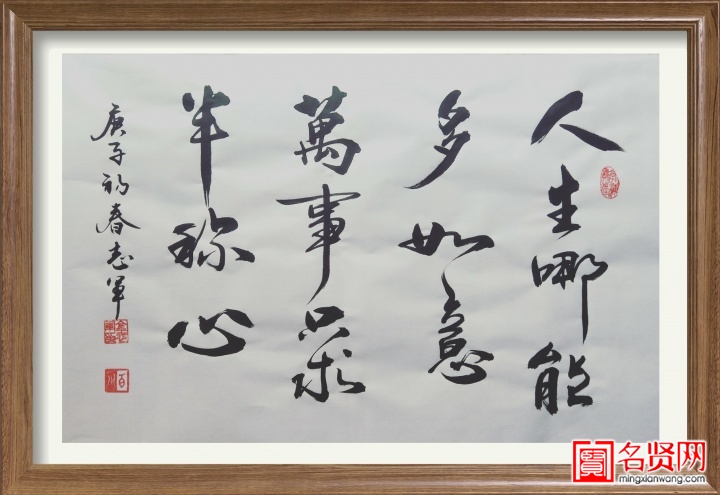 人生哪能
多如意
萬事只求
半称心
庚子初春志军
名贤网
mingxianwang.com